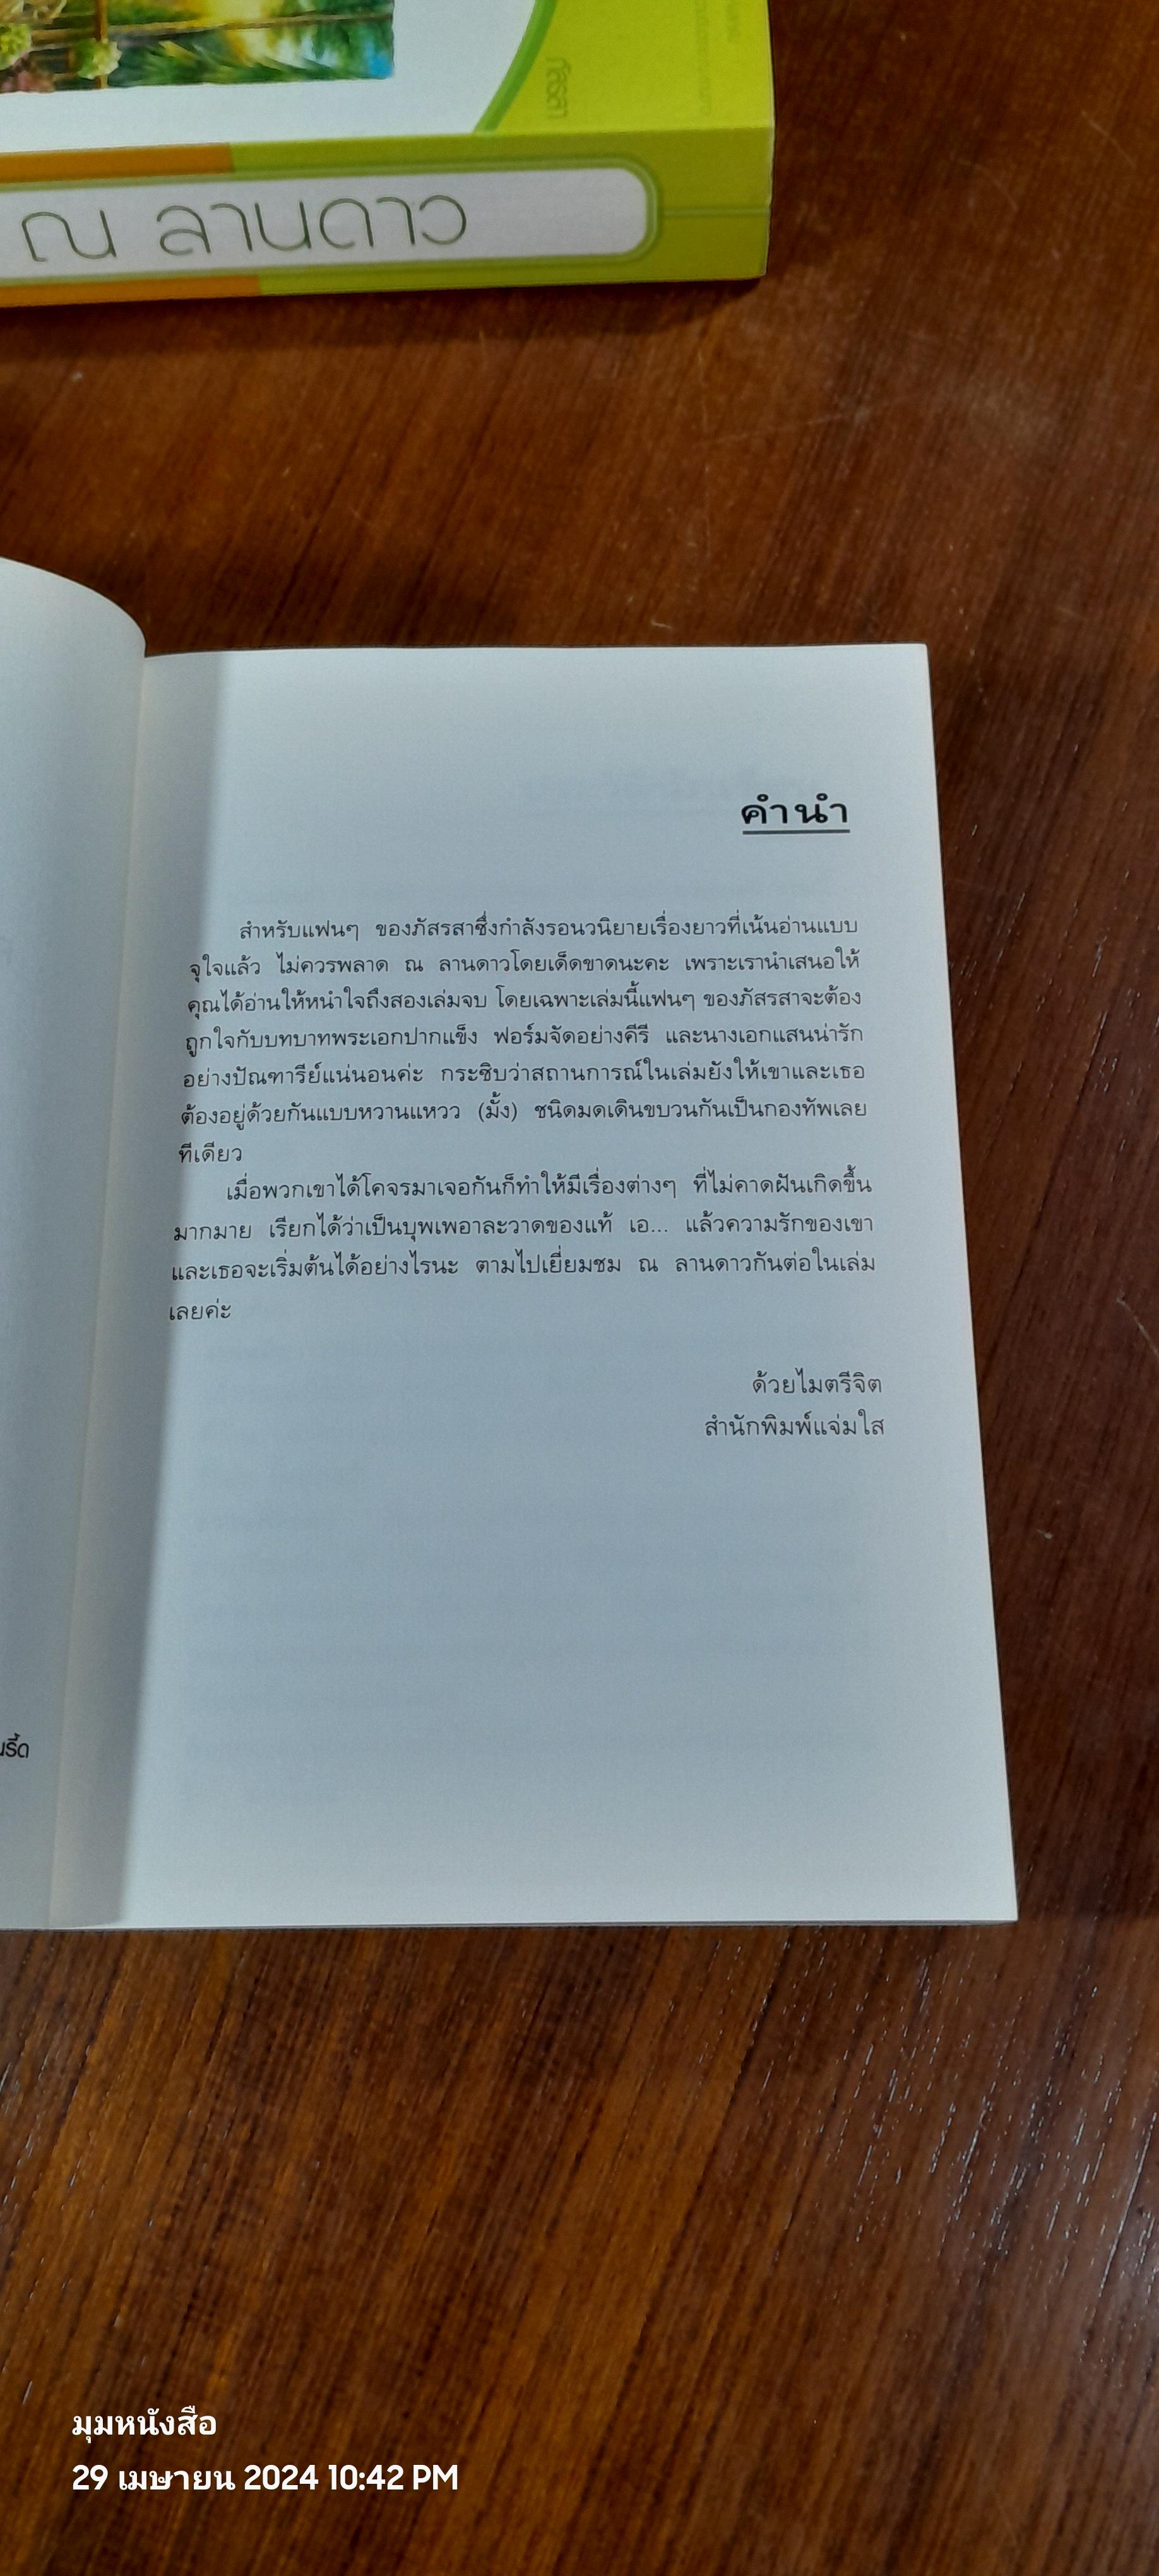 ภัสรสา
ณ ลานดาว
คำนำ
สำหรับแฟนๆ ของภัสรสาซึ่งกำลังรอนวนิยายเรื่องยาวที่เน้นอ่านแบบ
จุใจแล้ว ไม่ควรพลาด ณ ลานดาวโดยเด็ดขาดนะคะ เพราะเรานำเสนอให้
คุณได้อ่านให้หนำใจถึงสองเล่มจบ โดยเฉพาะเล่มนี้แฟนๆ ของภัสรสาจะต้อง
ถูกใจกับบทบาทพระเอกปากแข็ง ฟอร์มจัดอย่างคีรี และนางเอกแสนน่ารัก
อย่างปัณฑารีย์แน่นอนค่ะ กระซิบว่าสถานการณ์ในเล่มยังให้เขาและเธอ
ต้องอยู่ด้วยกันแบบหวานแหวว (มั้ง) ชนิดมดเดินขบวนกันเป็นกองทัพเลย
ทีเดียว
เมื่อพวกเขาได้โคจรมาเจอกันก็ทำให้มีเรื่องต่างๆ ที่ไม่คาดฝันเกิดขึ้น
มากมาย เรียกได้ว่าเป็นบุพเพอาละวาดของแท้ เอ... แล้วความรักของเขา
และเธอจะเริ่มต้นได้อย่างไรนะ ตามไปเยี่ยมชม ณ ลานดาวกันต่อในเล่ม
เลยค่ะ
ด้วยไมตรีจิต
สำนักพิมพ์แจ่มใส
มุมหนังสือ
29 เมษายน 2024 10:42 PM